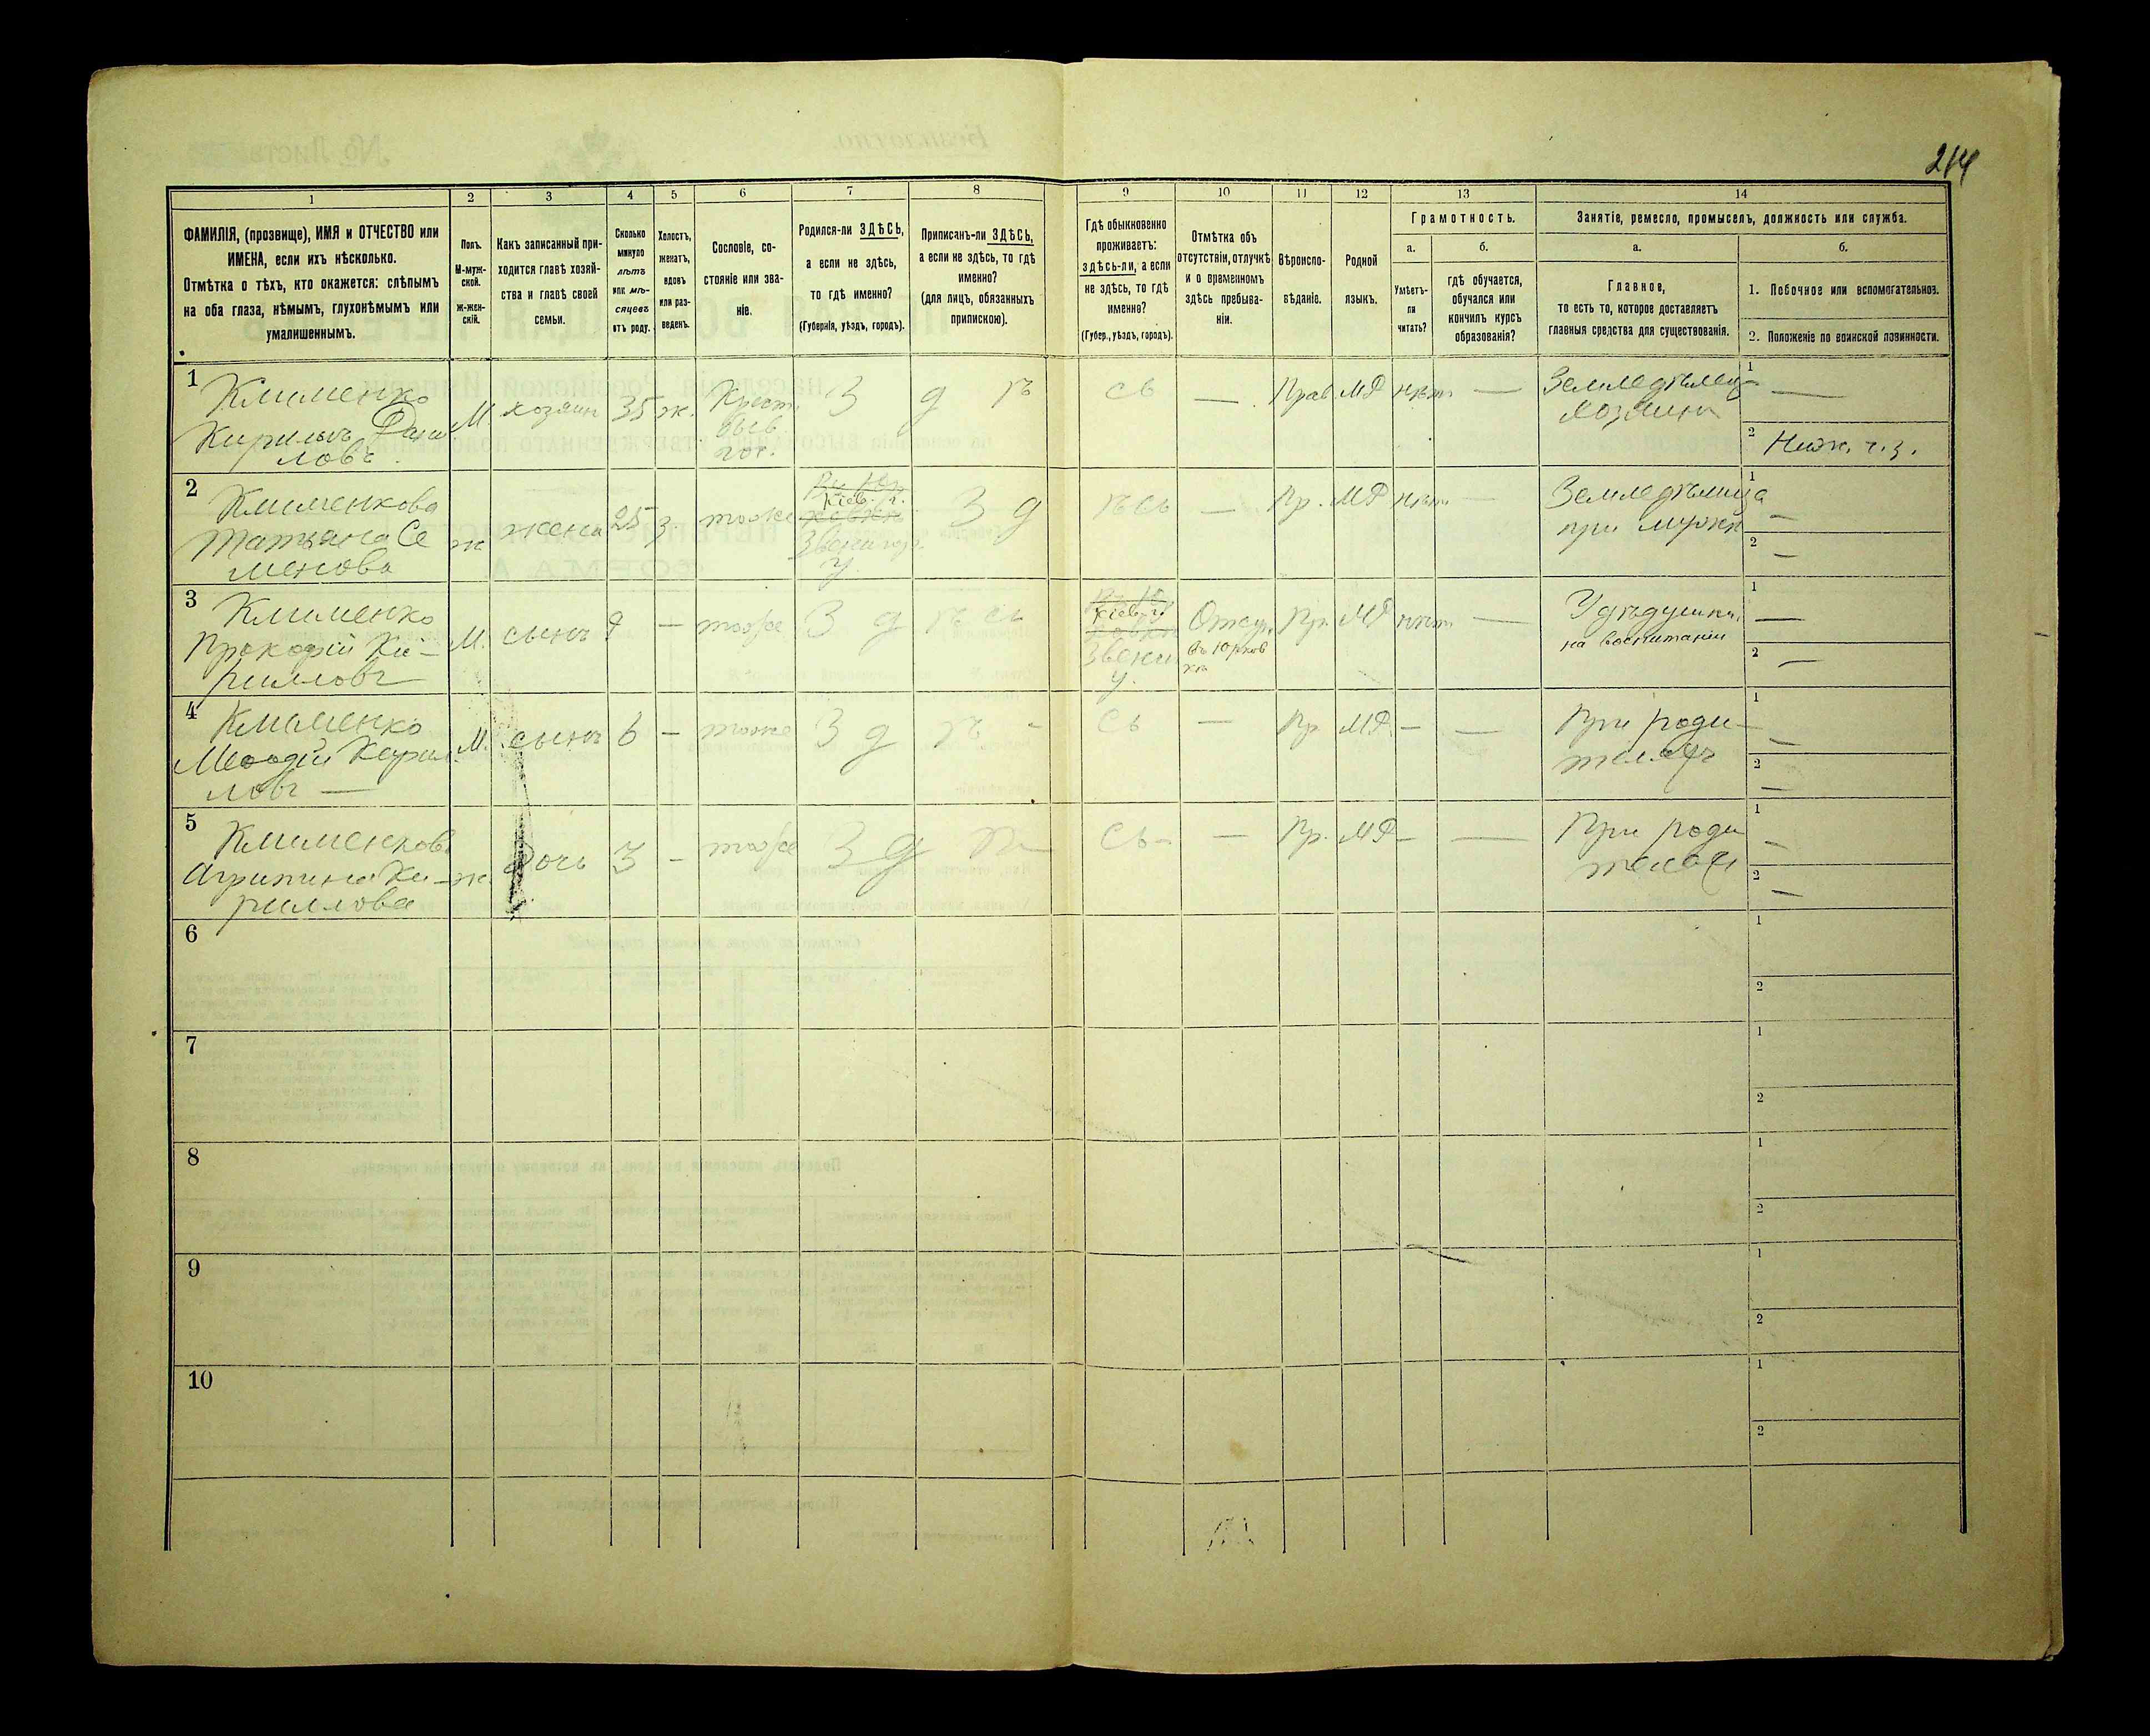 214
1
2
3
4
5
6
7
8
9
10
11
12
13
14
ФАМИЛІЯ, (прозвище), ИМЯ и ОТЧЕСТВО или
ИМЕНА, если ихъ нѣсколько.
Отмѣтка о тѣхъ, кто окажется: слѣпымъ
на оба глаза, нѣмымъ, глухонѣмымъ или
умалишеннымъ.
Полъ.
М-муж-
ской.
Ж-жен-
скій.
Какъ записанный при-
ходится главѣ хозяй-
ства и главѣ своей
семьи.
Сколько
минуло
лѣтъ
или мѣ-
сяцевъ
отъ роду.
Холостъ,
женатъ,
вдовъ
или раз-
веденъ.
Сословіе, со-
стояніе или зва-
ніе.
Родился-ли ЗДѢСЬ,
а если не здѣсь,
то гдѣ именно?
(Губернія, уѣздъ, городъ).
Приписанъ-ли ЗДѢСЬ,
а если не здѣсь, то гдѣ
именно?
(для лицъ, обязанныхъ
припискою).
Гдѣ обыкновенно
проживаетъ:
здѣсь-ли, а если
не здѣсь, то гдѣ
именно?
(Губер., уѣздъ, городъ).
Отмѣтка объ
отсутствіи, отлучкѣ
и о временномъ
здѣсь пребыва-
ніи.
Вѣроиспо-
вѣданіе.
Родной
языкъ.
Грамотность.
а.
Умѣетъ-
ли
читать?
б.
гдѣ обучается,
обучался или
кончилъ курсъ
образованія?
Занятіе, ремесло, промыселъ, должность или служба.
а.
Главное,
то есть то, которое доставляетъ
главныя средства для существованія.
б.
1. Побочное или вспомогательное.
2. Положеніе по воинской повинности.
1
Клименко
Кирилъ
ловъ
М. хозяинъ 35 ж. Крест.
быв.
З д ѣ сь — Прав. МР нѣт. —
Земледѣлец
хозяинъ
1 —
2 Ниж. ч. з.
2
Клименкова
Татьяна Се
менова
ж жена 25 з. тоже
Кіев. г.
Звенигор.
у.
З д ѣсь — Пр. МР нѣт. —
Земледѣлица
при мужѣ
1 —
2 —
3
Клименко
Прокофій Ки-
рилловъ
М. сынъ 9 — тоже З д ѣ сь
Кіев. г.
Звени
у.
Отсу.
въ Юрков
кѣ
Пр. МР нѣт. —
У дѣдушки,
на воспитаніи
1 —
2 —
4
Клименко
Кирил
ловъ —
М. сынъ 6 — тоже З д ѣ - сь — Пр МР. — —
При роди-
теляхъ
1 —
2 —
5
Клименкова
Агрипина Ки-
риллова
ж. дочь 3 — тоже З д ѣ- сь- — Пр. МР — —
При роди
теляхъ
1 —
2 —
6
1
2
7
1
2
8
1
2
9
1
2
10
1
2